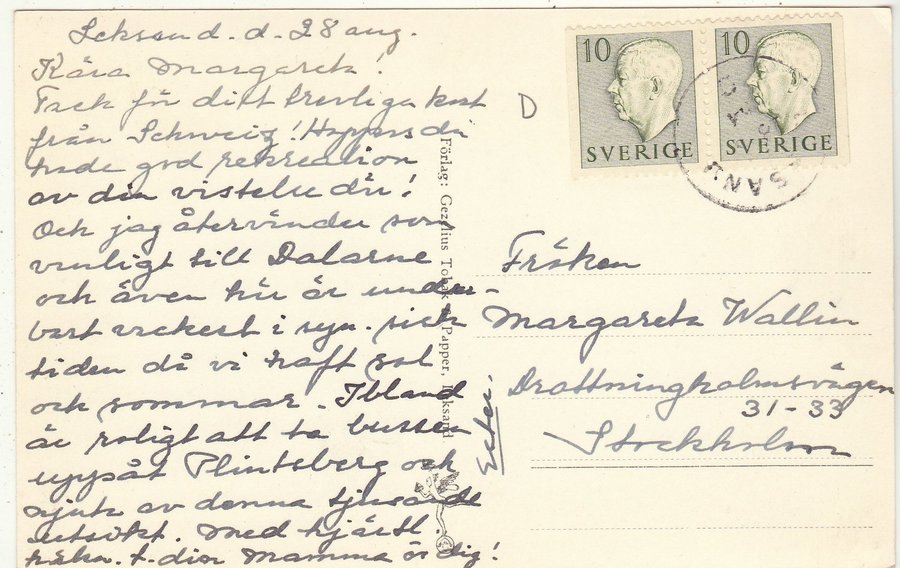 Leksand. d. 28 aug.
Kära Margareta!
Tack för ditt trevliga kort
från Schweiz! Hoppas du
hade god rekreation
av din vistelse där!
Och jag återvänder som
vanligt till Dalarne
och även här är under-
bart vackert i
tiden då vi haft sol
och sommar. Ibland
är roligt att ta bussen
uppåt Plintsberg och
njuta av denna tjusande
utsikt. Med hjärtl.
hälsn. t. din Mamma o. dig!
Ester.
Förlag: Gezelius Tobak & Papper, Leksand
D
10 SVERIGE
10 SVERIGE
Fröken
Margareta Wallin
Drottningholmsvägen
31-33
Stockholm